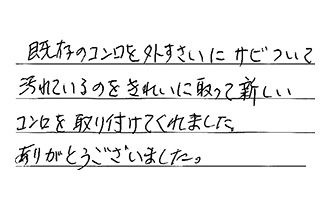 既存のコンロを外すさいにサビついて
汚れているのをきれいに取って新しい
コンロを取り付けてくれました。
ありがとうございました。